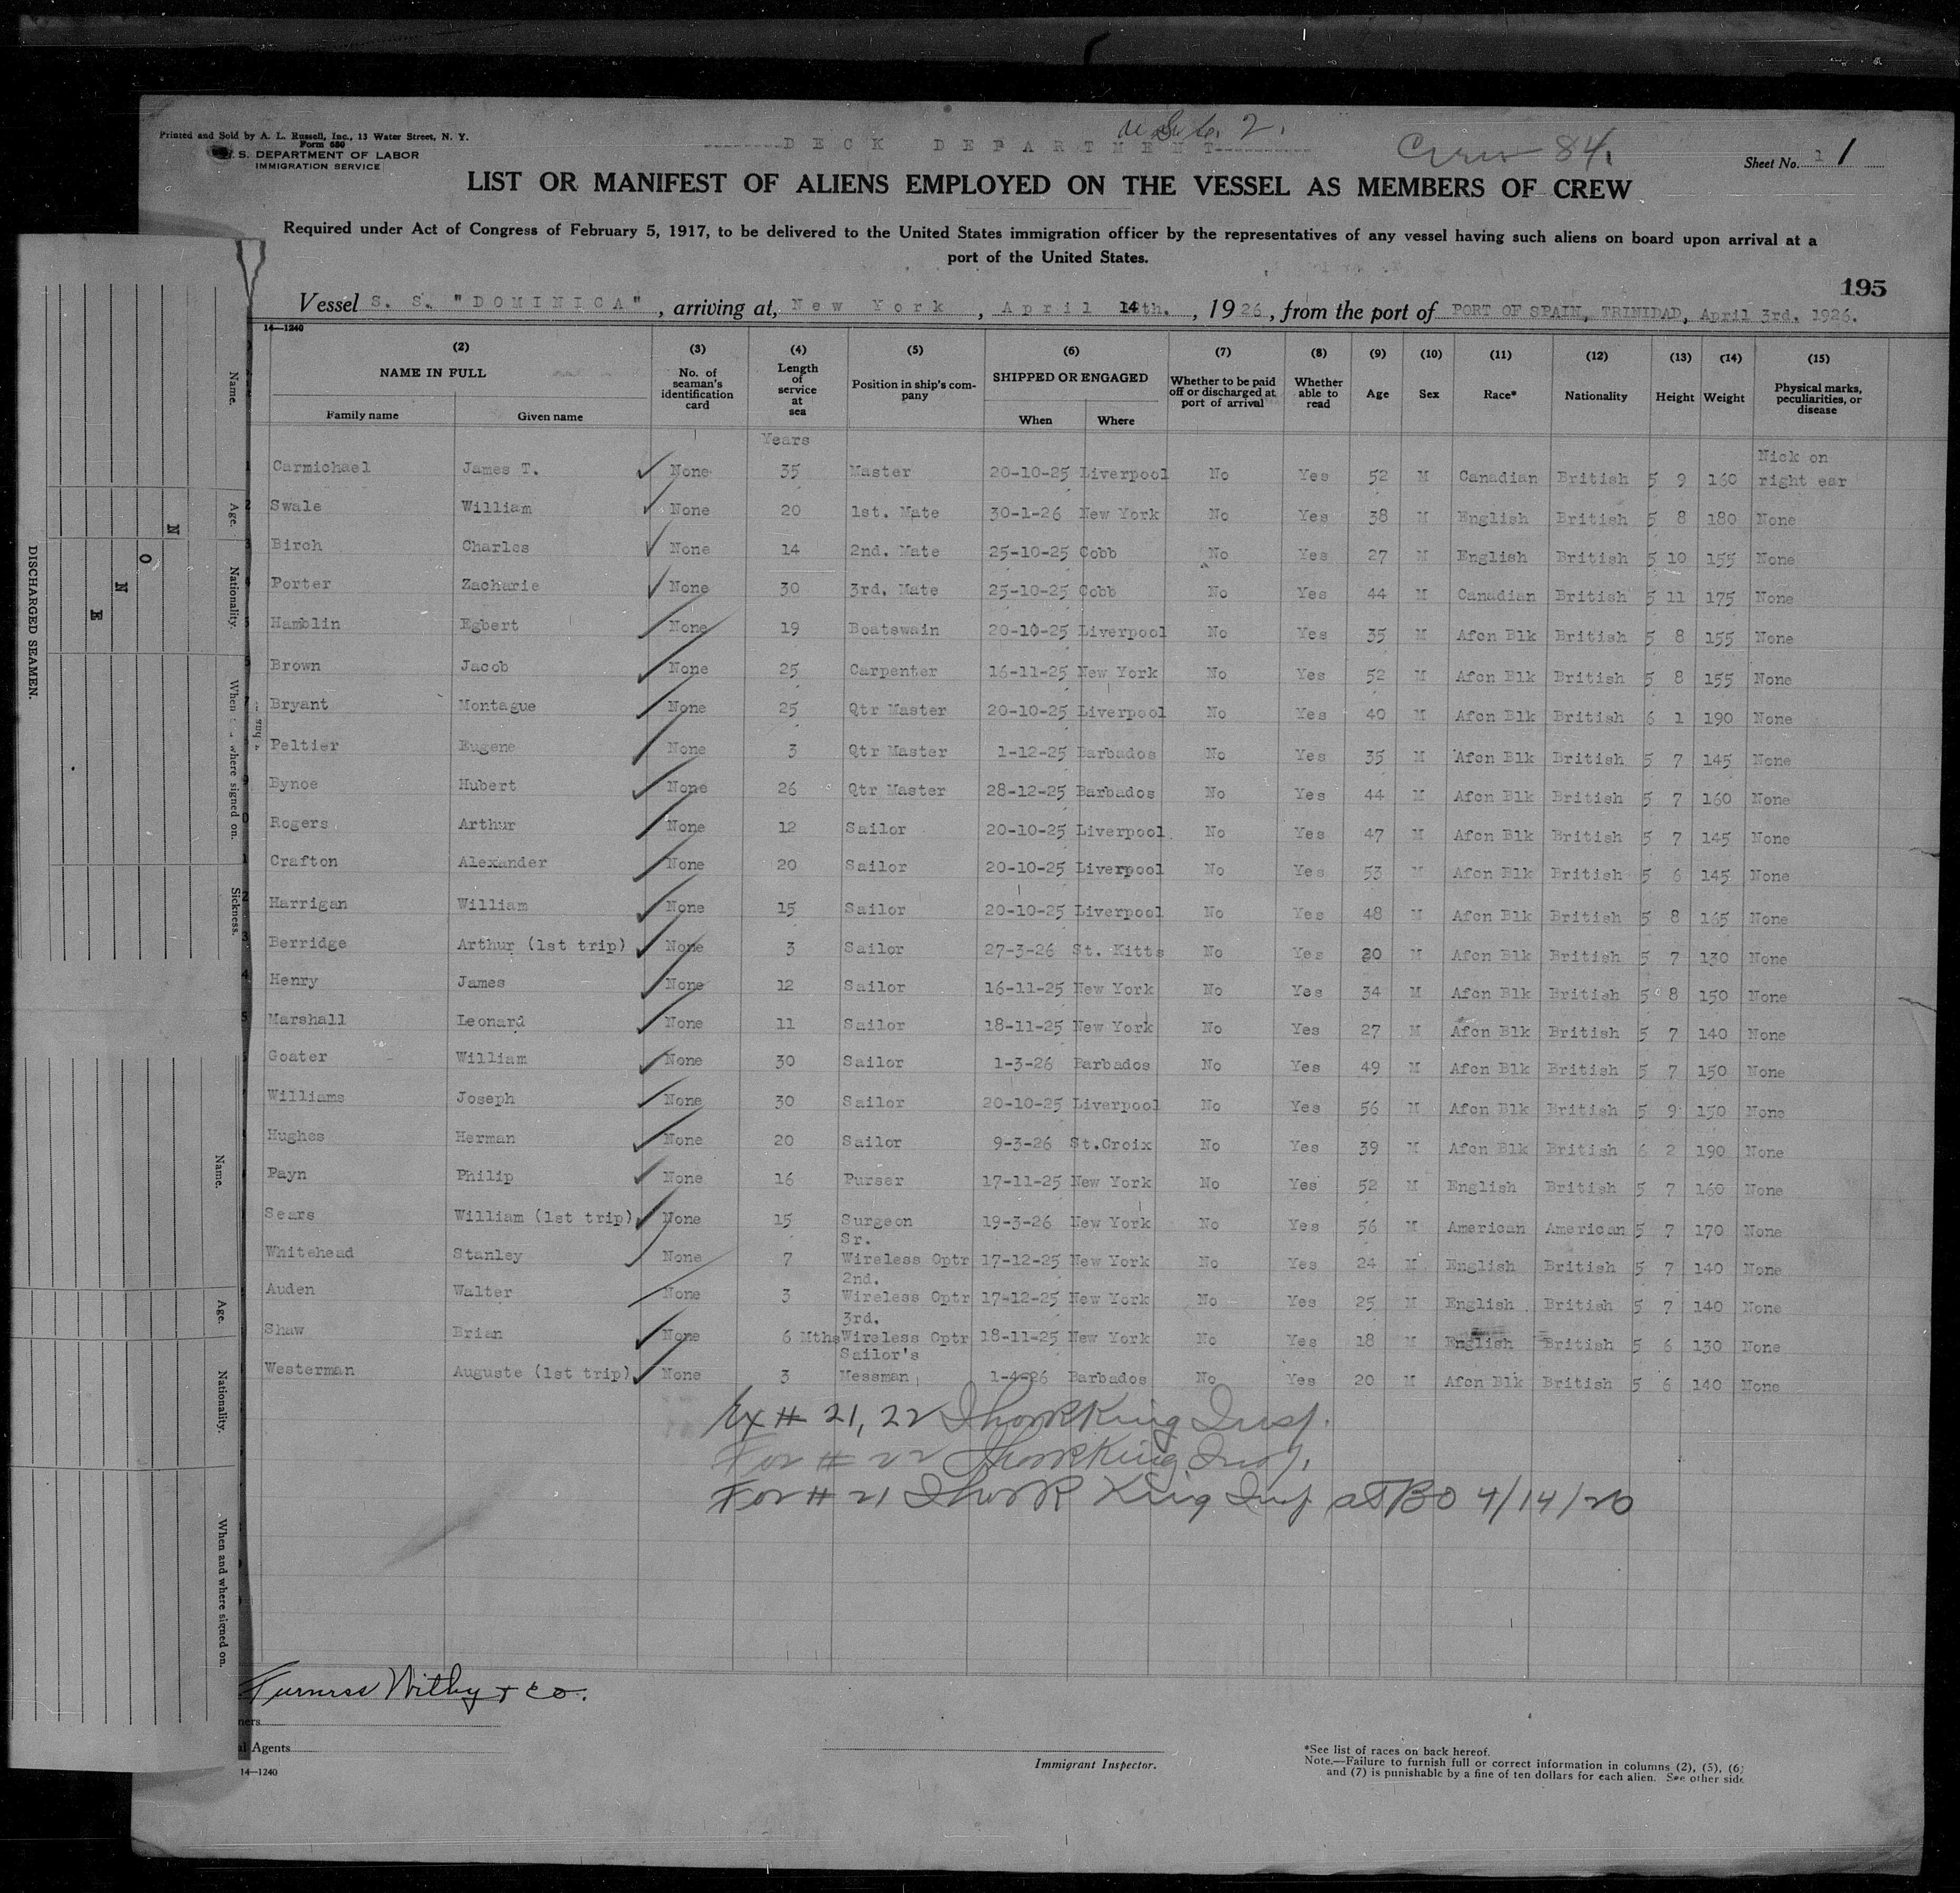 Printed and Sold by A. L. Russell, Inc., 13 Water Street, N. Y.
Form 680
U. S. DEPARTMENT OF LABOR
IMMIGRATION SERVICE
DECK DEPARTMENT
Crew 84.
Sheet No. 1 1
LIST OR MANIFEST OF ALIENS EMPLOYED ON THE VESSEL AS MEMBERS OF CREW
Required under Act of Congress of February 5, 1917, to be delivered to the United States immigration officer by the representatives of any vessel having such aliens on board upon arrival at a
port of the United States.
195
Vessel S. S. "DOMINICA", arriving at, New York, April 14th., 1926, from the port of PORT OF SPAIN, TRINIDAD, April 3rd. 1926.
14—1240
(2) (3) (4) (5) (6) (7) (8) (9) (10) (11) (12) (13) (14) (15)
NAME IN FULL
Family name Given name
No. of seaman's identification card
Length of service at sea
Position in ship's company
SHIPPED OR ENGAGED
When Where
Whether to be paid off or discharged at port of arrival
Whether able to read
Age Sex Race* Nationality Height Weight
Physical marks, peculiarities, or disease
Years
Carmichael James T. None 35 Master 20-10-25 Liverpool No Yes 52 M Canadian British 5 9 160 Nick on right ear
Swale William None 20 1st. Mate 30-1-26 New York No Yes 38 M English British 5 8 180 None
Birch Charles None 14 2nd. Mate 25-10-25 Cobb No Yes 27 M English British 5 10 155 None
Porter Zacharie None 30 3rd. Mate 25-10-25 Cobb No Yes 44 M Canadian British 5 11 175 None
Hamblin Egbert None 19 Boatswain 20-10-25 Liverpool No Yes 35 M Afcn Blk British 5 8 155 None
Brown Jacob None 25 Carpenter 16-11-25 New York No Yes 52 M Afcn Blk British 5 8 155 None
Bryant Montague None 25 Qtr Master 20-10-25 Liverpool No Yes 40 M Afcn Blk British 6 1 190 None
Peltier Eugene None 3 Qtr Master 1-12-25 Barbados No Yes 35 M Afcn Blk British 5 7 145 None
Bynoe Hubert None 26 Qtr Master 28-12-25 Barbados No Yes 44 M Afcn Blk British 5 7 160 None
Rogers Arthur None 12 Sailor 20-10-25 Liverpool No Yes 47 M Afcn Blk British 5 7 145 None
Crafton Alexander None 20 Sailor 20-10-25 Liverpool No Yes 53 M Afcn Blk British 5 6 145 None
Harrigan William None 15 Sailor 20-10-25 Liverpool No Yes 48 M Afcn Blk British 5 8 165 None
Berridge Arthur (1st trip) None 3 Sailor 27-3-26 St. Kitts No Yes 20 M Afcn Blk British 5 7 130 None
Henry James None 12 Sailor 16-11-25 New York No Yes 34 M Afcn Blk British 5 8 150 None
Marshall Leonard None 11 Sailor 18-11-25 New York No Yes 27 M Afcn Blk British 5 7 140 None
Goater William None 30 Sailor 1-3-26 Barbados No Yes 49 M Afcn Blk British 5 7 150 None
Williams Joseph None 30 Sailor 20-10-25 Liverpool No Yes 56 M Afcn Blk British 5 9 150 None
Hughes Herman None 20 Sailor 9-3-26 St.Croix No Yes 39 M Afcn Blk British 6 2 190 None
Payn Philip None 16 Purser 17-11-25 New York No Yes 52 M English British 5 7 160 None
Sears William (1st trip) None 15 Surgeon 19-3-26 New York No Yes 56 M American American 5 7 170 None
Whitehead Stanley None 7 Sr. Wireless Optr 17-12-25 New York No Yes 24 M English British 5 7 140 None
Auden Walter None 3 2nd. Wireless Optr 17-12-25 New York No Yes 25 M English British 5 7 140 None
Shaw Brian None 6 Mths 3rd. Wireless Optr 18-11-25 New York No Yes 18 M English British 5 6 130 None
Westerman Auguste (1st trip) None 3 Sailor's Messman 1-4-26 Barbados No Yes 20 M Afcn Blk British 5 6 140 None
Ex # 21, 22 King Insp.
For # 22 King Insp.
For # 21 King Insp. at BO 4/14/26
Furness Withy & Co.
Agents
14—1240
Immigrant Inspector.
*See list of races on back hereof.
Note.—Failure to furnish full or correct information in columns (2), (5), (6)
and (7) is punishable by a fine of ten dollars for each alien. See other side
DISCHARGED SEAMEN.
Name.
Age.
Nationality.
When where signed on.
Sickness.
NONE
Name.
Age.
Nationality.
When and where signed on.